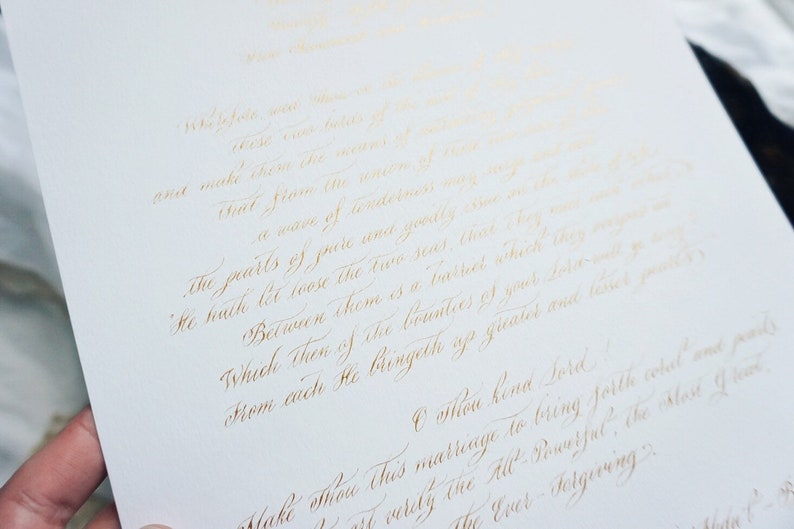 Wherefore, wed Thou in the heaven of Thy mercy
these two birds of the nest of Thy love,
and make them the means of attracting perpetual grace;
that from the union of these two seas of love
a wave of tenderness may surge and cast
the pearls of pure and goodly issue on the shore of life.
"He hath let loose the two seas, that they meet each other:
Between them is a barrier which they overpass not.
Which then of the bounties of your Lord will ye deny?
From each He bringeth up greater and lesser pearls."
O Thou kind Lord!
Make Thou this marriage to bring forth coral and pearls.
art verily the All-Powerful, the Most Great,
the Ever-Forgiving.